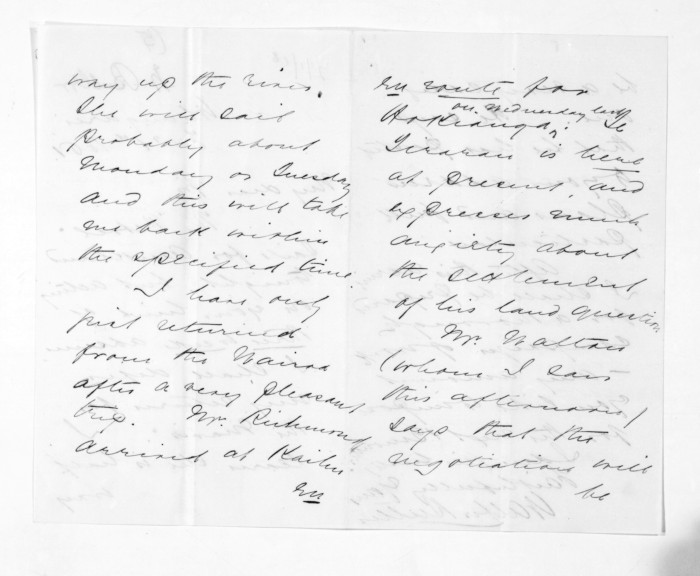 way up the river.
She will sail
probably about
Monday or Tuesday
and this will take
me back within
the specified time.
I have only
just returned
from the Wairoa
after a very pleasant
trip. Mr. Richmond
arrived at Kaihu
en
en route for
on Wednesday last
Hokianga; Te
Tirarau is here
at present, and
expresses much
anxiety about
the settlement
of his land question
Mr. Walton
(whom I saw
this afternoon)
says that the
negotiation will
be